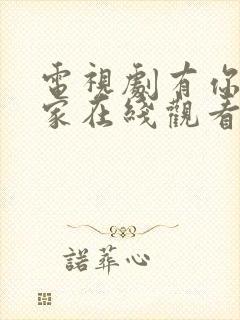 電視劇有你
家在綫觀看
諾葬心